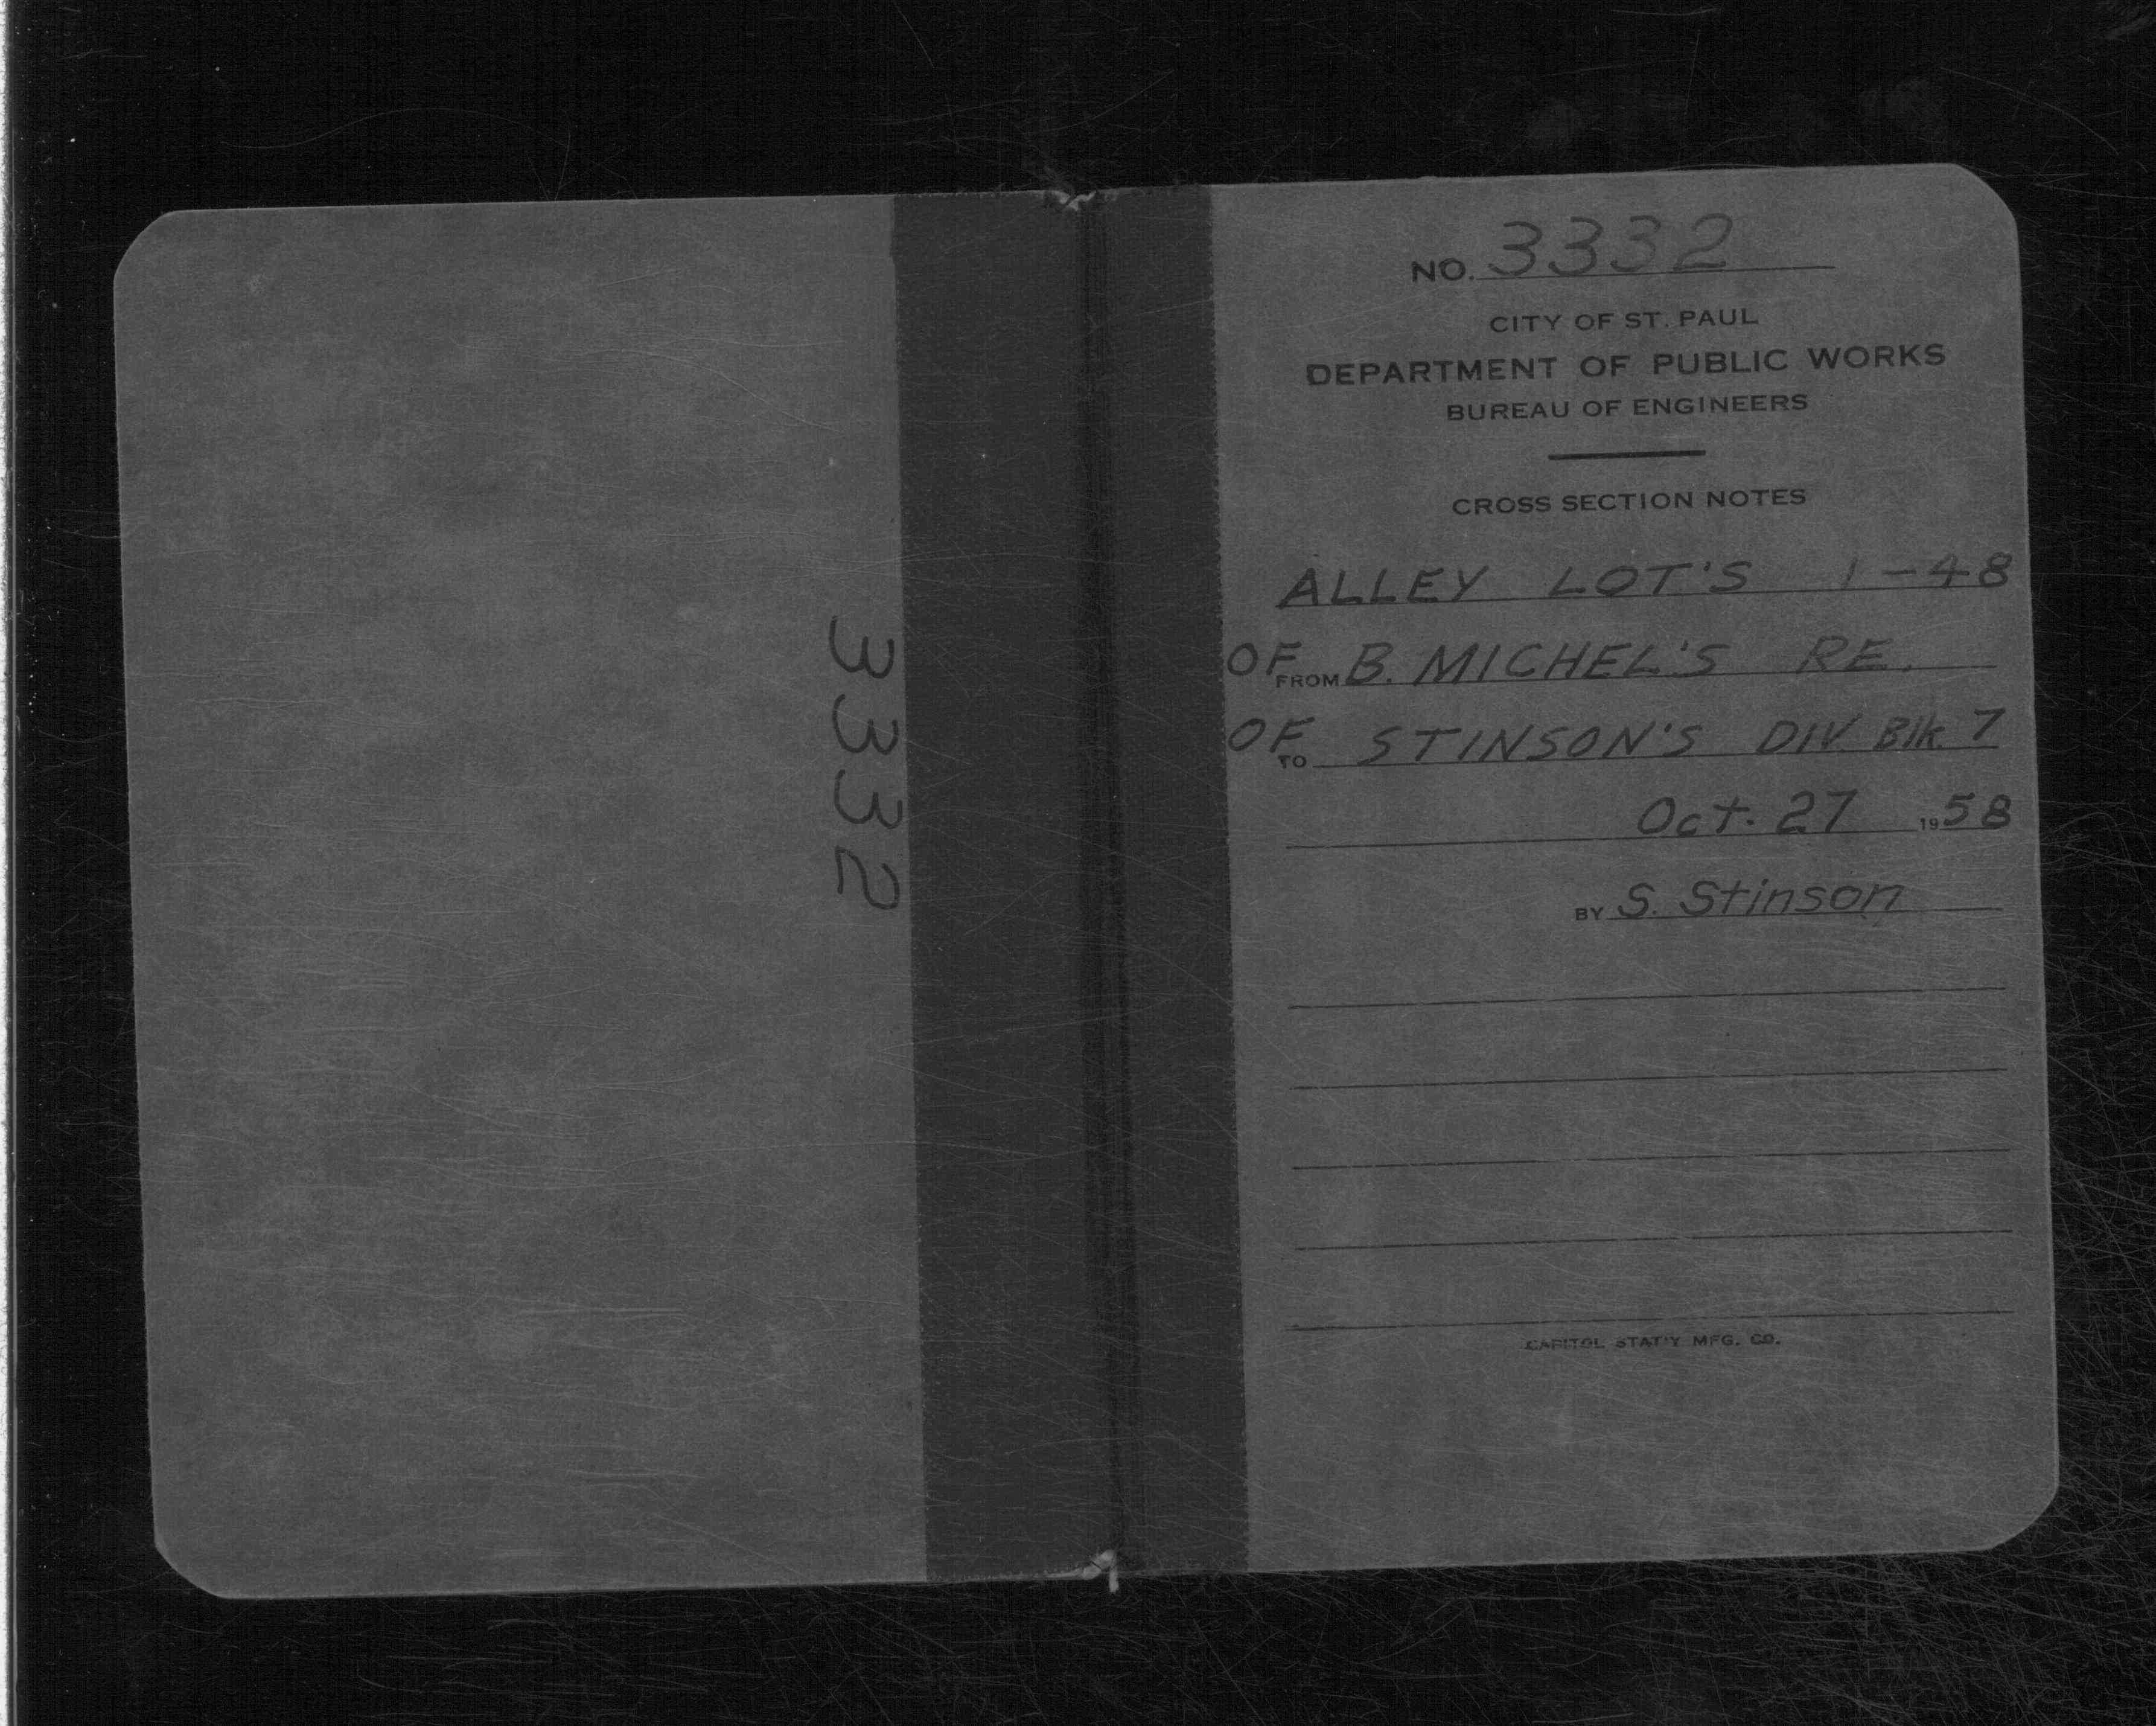 3332
NO. 3332
CITY OF ST. PAUL
DEPARTMENT OF PUBLIC WORKS
BUREAU OF ENGINEERS
CROSS SECTION NOTES
ALLEY LOT'S 1-48
OF FROM B. MICHEL'S RE.
OF TO STINSON'S DIV. Blk. 7
Oct. 27 1958
BY S. Stinson
CAPITOL STAT'Y MFG. CO.